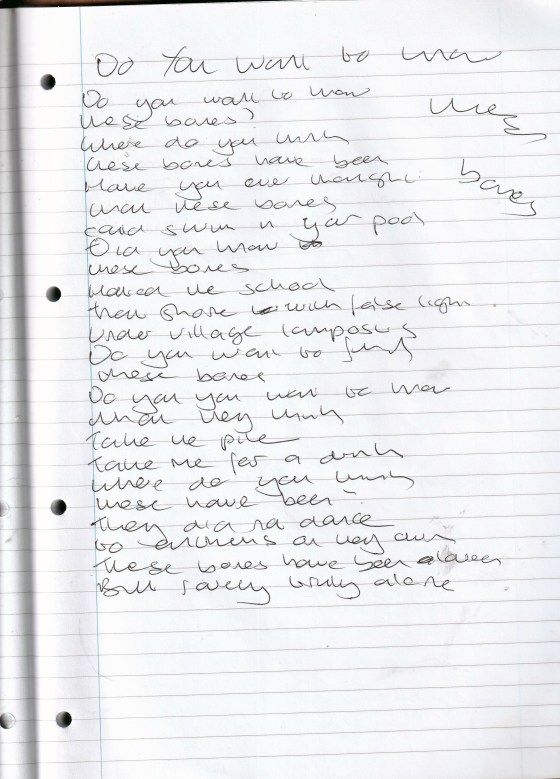 Do You want to know
Do you want to know
these bones?
these
where do you think
these bones have been
bones
Have you ever thought
that these bones
could swim in your pool
Did you know
these bones
the school
then shone with false light
under village lamposts
Do you want to find
these bones
Do you you want to know
what they think
take the
take me for a drink
where do you think
these have been
they did not dance
to on they own
these bones have been
But rarely truly alone